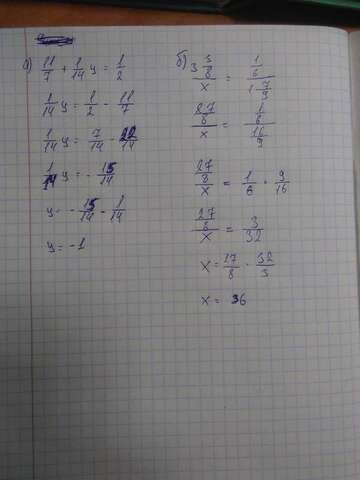 а) 11/7 + 1/14 y = 1/2
1/14 y = 1/2 - 11/7
1/14 y = 7/14 - 22/14
1/14 y = - 15/14
y = - 15/14 - 1/14
y = -1
б) 3 3/8 / x = 1/6 / 1 7/9
27/8 / x = 1/6 / 16/9
27/8 / x = 1/6 · 9/16
27/8 / x = 3/32
x = 27/8 · 32/3
x = 36